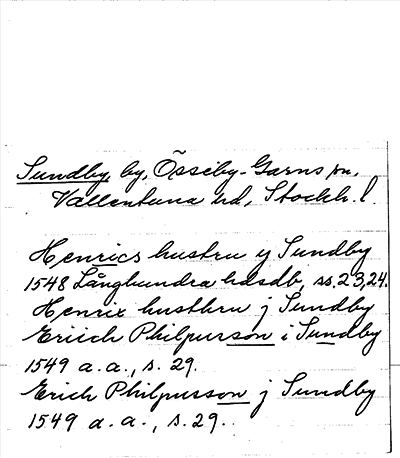 Sundby, by, Össeby-Garns sn,
Vallentuna hd, Stockh. l.
Henrics hustru y Sundby
1548 Långhundra hdsdb, ss. 23, 24.
Henrix husthru j Sundby
Eriich Philpusson i Sundby
1549 a.a., s. 29.
Erich Philpusson j Sundby
1549 a.a., s. 29.